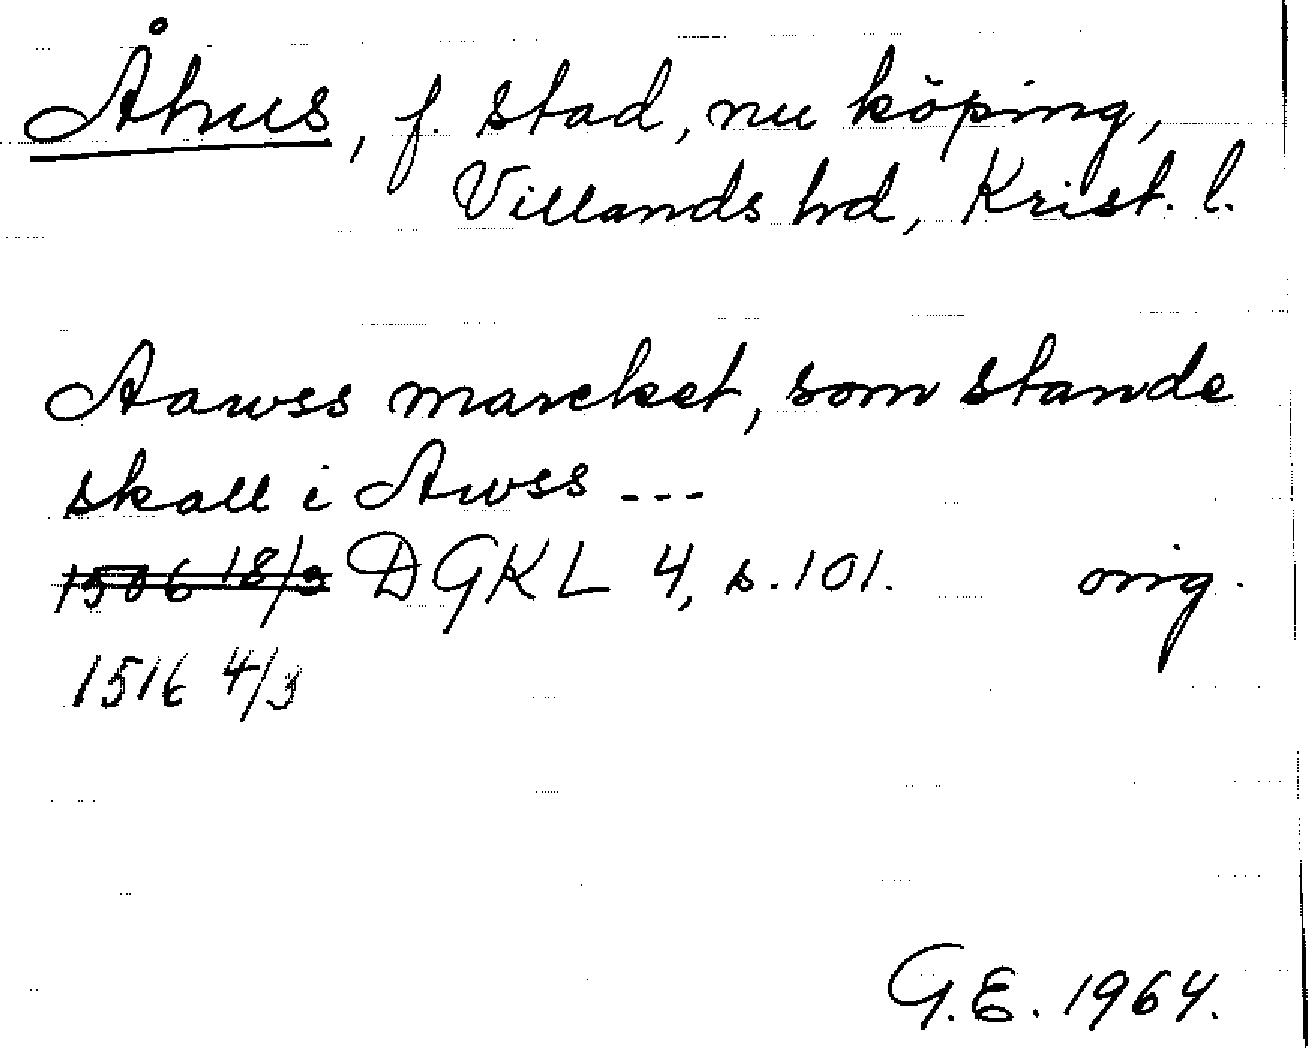 Åhus, f. stad, nu köping,
Villands hd, Krist. l.
Aawss marcket, som stande
skall i Awss ---
1506 18/3 DGKL 4, s. 101. orig.
1516 4/3
G.E. 1964.